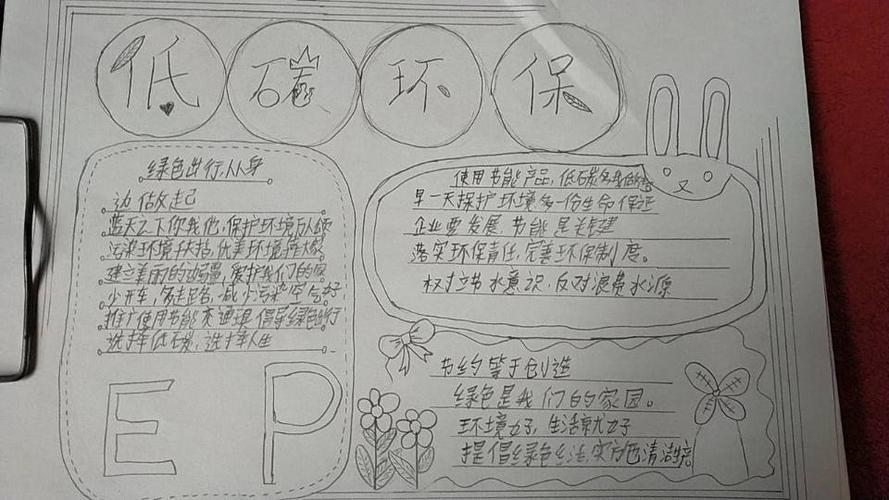 低碳环保
绿色出行,从身
边做起
蓝天之下你我他,保护环境万人颂
污染环境千夫指,优美环境
建立美丽的,爱护我们的
少开车,多走路,减少污染空气好
推广使用节能交通,倡导绿色出行
选择低碳,选择人生
E P
使用节能产品,低碳
早一天保护环境多一份生命保证
企业要发展,节能是关键
落实环保责任,完善环保制度。
树立节水意识,反对浪费水源
节约等于创造
绿色是我们的家园。
环境好,生活就好
提倡绿色生活,实施清洁